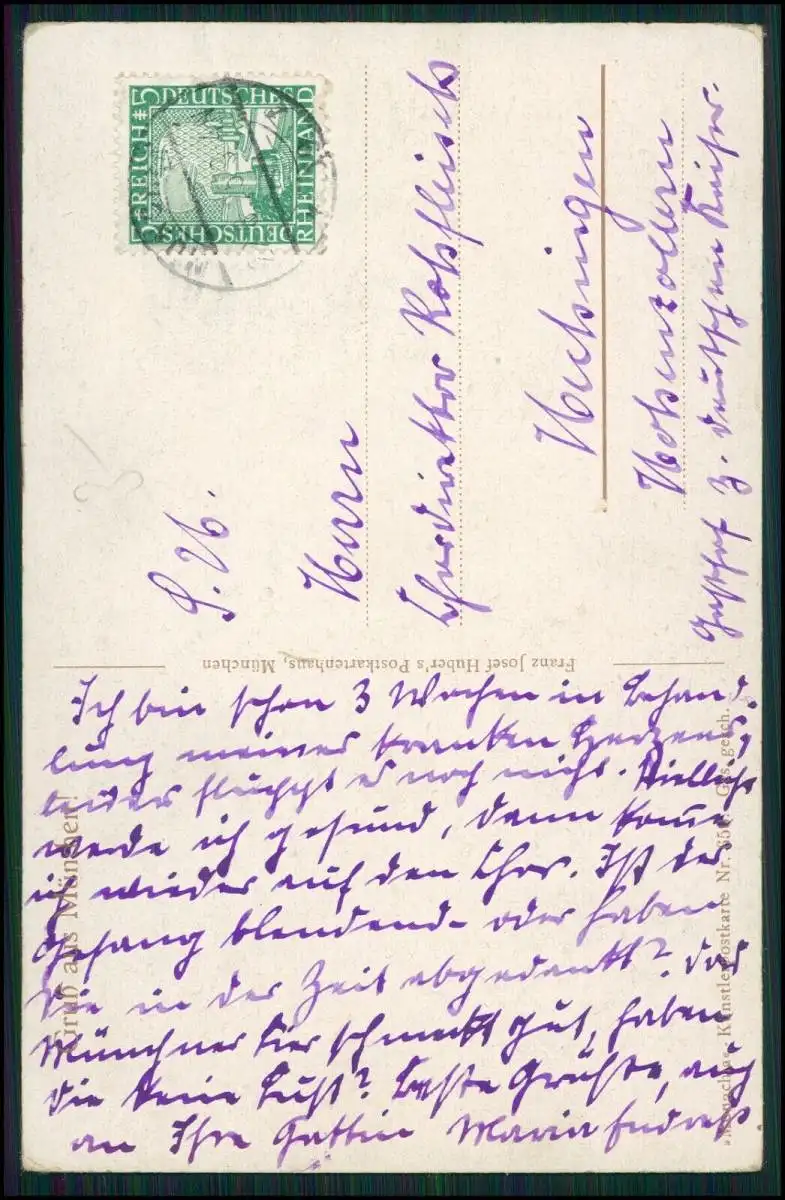 DEUTSCHES REICH 5
DEUTSCHES REICH 5
RHEINLAND
S. H.
Herrn
Chordirektor
Hechingen
Hohenzollern
Gasthof z. deutschen Kaiser.
Franz Josef Huber's Postkartenhaus, München
Gruß aus München!
Künstlerpostkarte Nr. Ges. gesch.
Ich bin schon 3 Wochen in Behand-
lung meines kranken Herzens,
leider es noch nicht. Vielleicht
werde ich gesund, dann komme
ich wieder auf den Chor. Ist der
Gesang blendend - oder haben
Sie in der Zeit abgedankt? Das
Münchner Bier schmeckt gut, haben
Sie keine Lust? Beste Grüße, auch
an Ihre Gattin Maria Endraß.